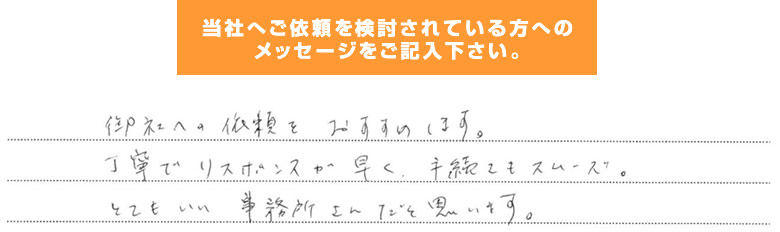 当社へご依頼を検討されている方への
メッセージをご記入下さい。
御社への依頼をおすすめします。
丁寧でリスポンスが早く、手続きもスムーズ。
とてもいい事務所さんだと思います。